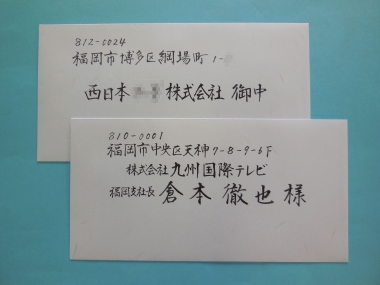 812-0024
福岡市博多区綱場町1-
西日本 株式会社 御中
810-0001
福岡市中央区天神7-8-9-6F
株式会社九州国際テレビ
福岡支社長 倉本徹也様